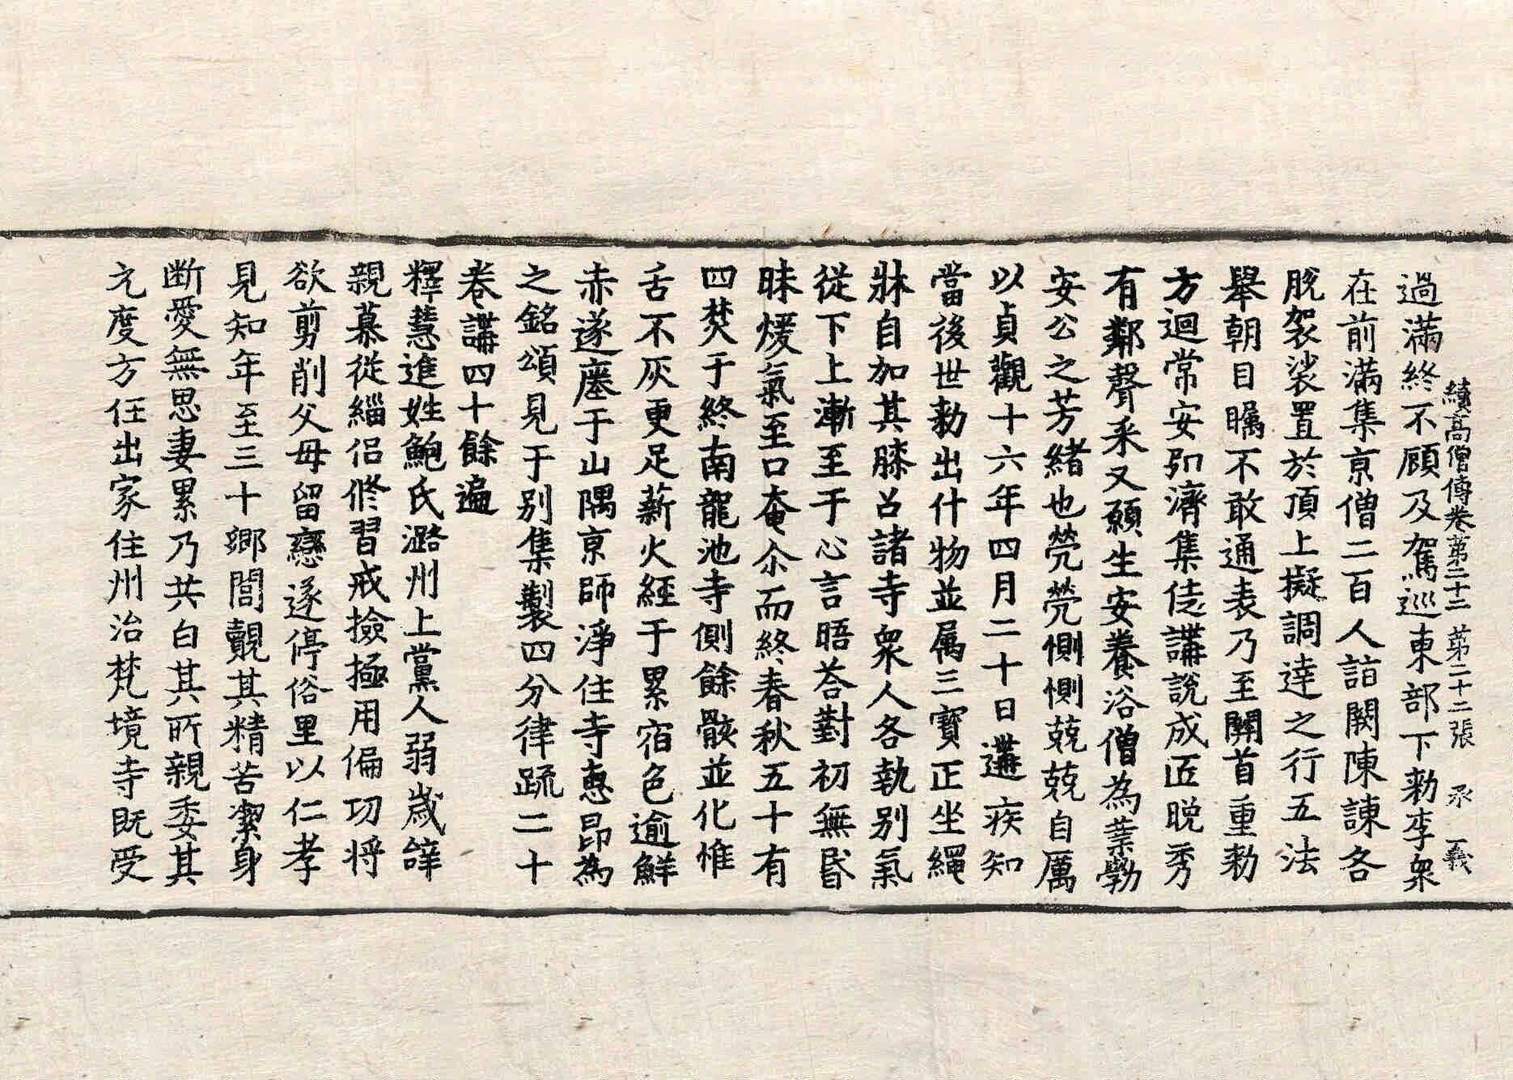 續高僧傳卷第二十二　第二十二張　承　義
過滿終不顧及駕巡東部下勑李衆
在前滿集京僧二百人詣闕陳諫各
脫袈裟置於頂上擬調達之行五法
舉朝目矚不敢通表乃至關首重勑
方迴常安弘濟集徒講說成匠晚秀
有鄰聲釆又願生安養浴僧為業勤
安公之芳緒也煢煢惻惻兢兢自厲
以貞觀十六年四月二十日遘疾知
當後世勑出什物並属三寶正坐繩
牀自加其膝召諸寺衆人各執别氣
從下上漸至于心言晤荅對初無昬
昧煖氣至口奄尒而終春秋五十有
四焚于終南龍池寺側餘骸並化惟
舌不灰更足薪火經于累宿色逾鮮
赤遂塵于山隅京師淨住寺惠昂為
之銘頌見于别集製四分律䟽二十
卷講四十餘遍
釋慧進姓鮑氏潞州上黨人弱歲辝
親慕從緇侣俢習戒撿極用偏功将
欲剪削父母留戀遂停俗里以仁孝
見知年至三十鄉閭覿其精苦潔身
断愛無思妻累乃共白其所親委其
元度方任出家住州治梵境寺既受